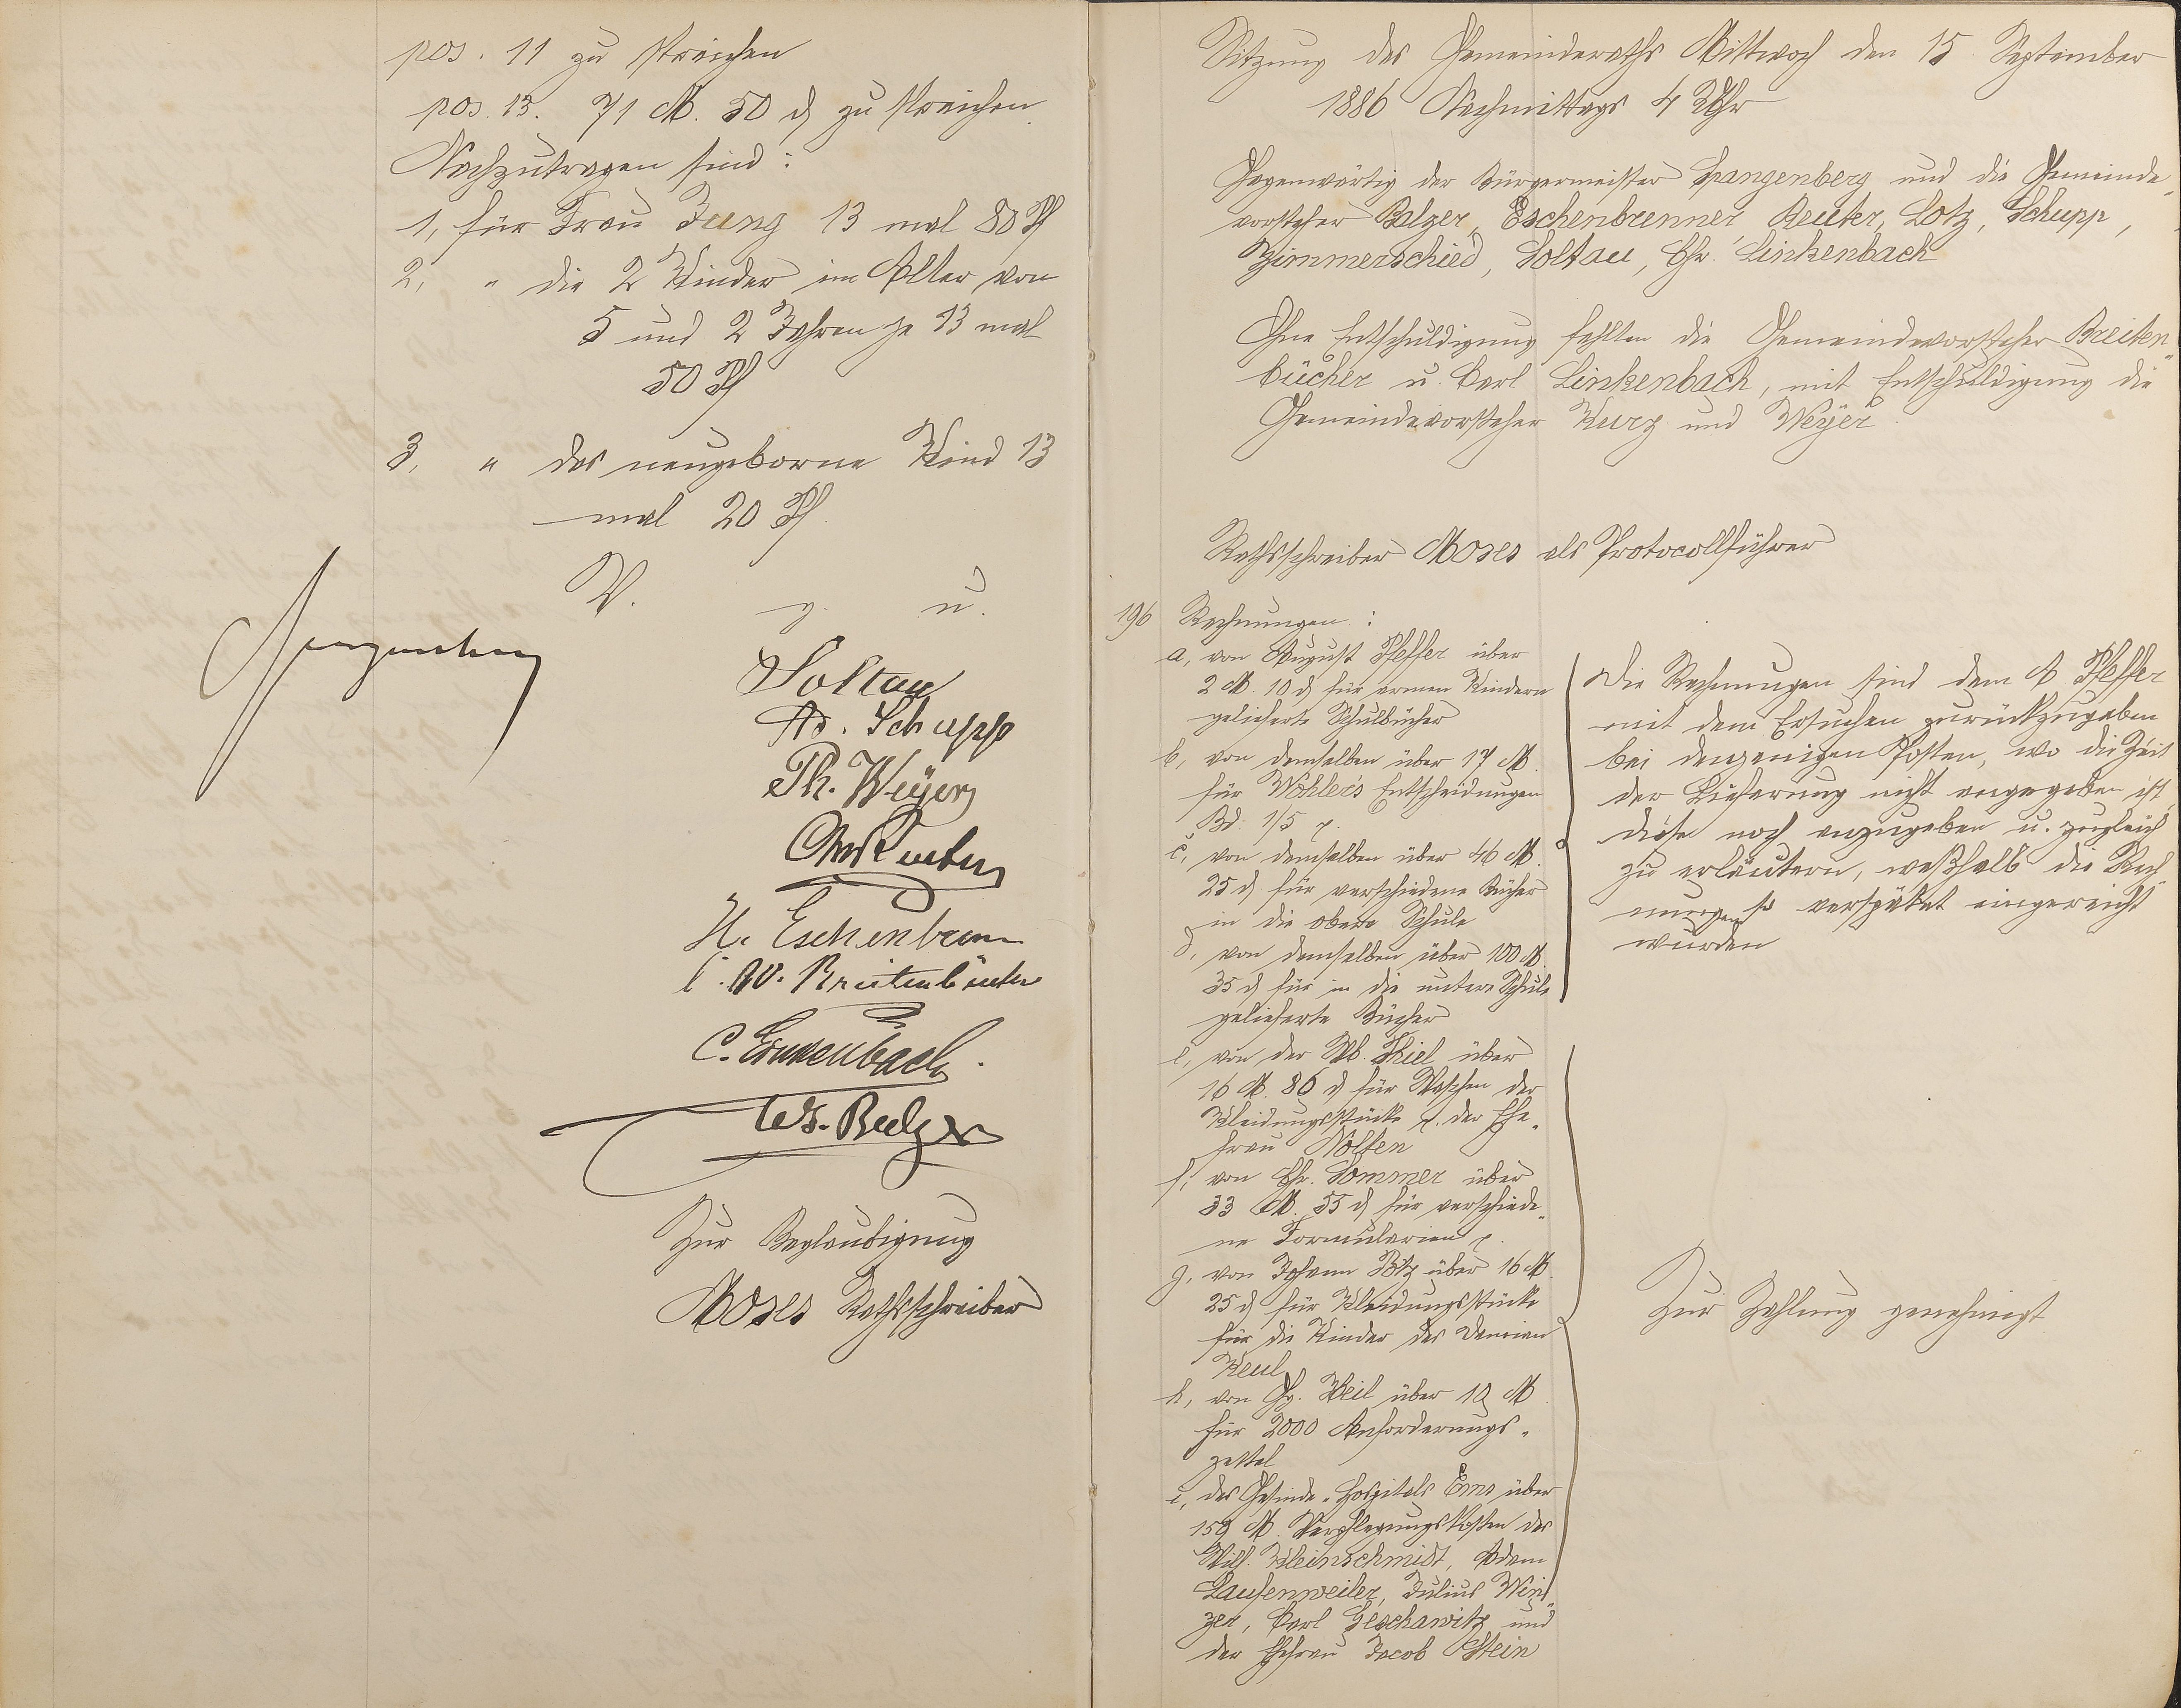 pos. 11 zu streichen
pos. 13. 71 M. 50 d zu streichen.
Nachzutragen sind:
1, für Frau Jung 13 mal 80 Pf
2, " die 2 Kinder im Alter von
5 und 2 Jahren je 13 mal
50 Pf
3, " das neugeborne Kind 13
mal 20 Pf.
V. g. u.
Spangenberg
Soltau
Ad. Schupp
Ph. Weÿer
Reuter
H. Eschenbrenn
C. W. Breitenbücher
C. Linkenbach.
Balzer
Zur Beglaubigung
Moses Rathsschreiber
Sitzung des Gemeinderaths Mittwoch den 15 September
1886 Nachmittags 4 Uhr
Gegenwärtig der Bürgermeister Spangenberg und die Gemeinde-
vorsteher Balzer, Eschenbrenner, Reuter, Lotz, Schupp,
Zimmerschied, Soltau, Chr. Linkenbach
Ohne Entschuldigung fehlten die Gemeindevorsteher Breiten-
bücher u. Carl Linkenbach, mit Entschuldigung die
Gemeindevorsteher Kurz und Weÿer.
Rathsschreiber Moses als Protocollführer
196 Rechnungen:
a, von August Pfeffer über
2 M. 10 d für armen Kindern
gelieferte Schulbücher
b, von demselben über 17 M.
für Wohlers Entscheidungen
Bd. 1/5
c, von demselben über 46 M.
25 d für verschiedene Bücher
in die obere Schule
d, von demselben über 100 M.
35 d für in die untere Schule
gelieferte Bücher
Die Rechnungen sind dem A Pfeffer
mit dem Ersuchen zurückzugeben
bei denjenigen Posten, wo die Zeit
der Lieferung nicht angegeben ist,
diese noch anzugeben u. zugleich
zu erläutern, weßhalb die Rech-
nungen so verspätet eingereicht
wurden
e, von der Wb. Thiel über
16 M. 86 d für Waschen der
Kleidungsstücke der Ehe-
frau Nolten
f, von Chr. Sommer über
33 M. 55 d für verschiede-
ne Formularien
g, von Johann Pötz über 16 M.
25 d für Kleidungsstücke
für die Kinder des Damian
Keul
h, von Hg. Weil über 10 M
für 2000 Anforderungs-
zettel
i, des Gesinde-Hospitals Ems über
159 M. Verpflegungskosten des
Wilh. Kleinschmidt, Adam
Laufenweiler, Julius Win-
zer, Carl Geschawitz und
der Ehefrau Jacob Stein
Zur Zahlung genehmigt